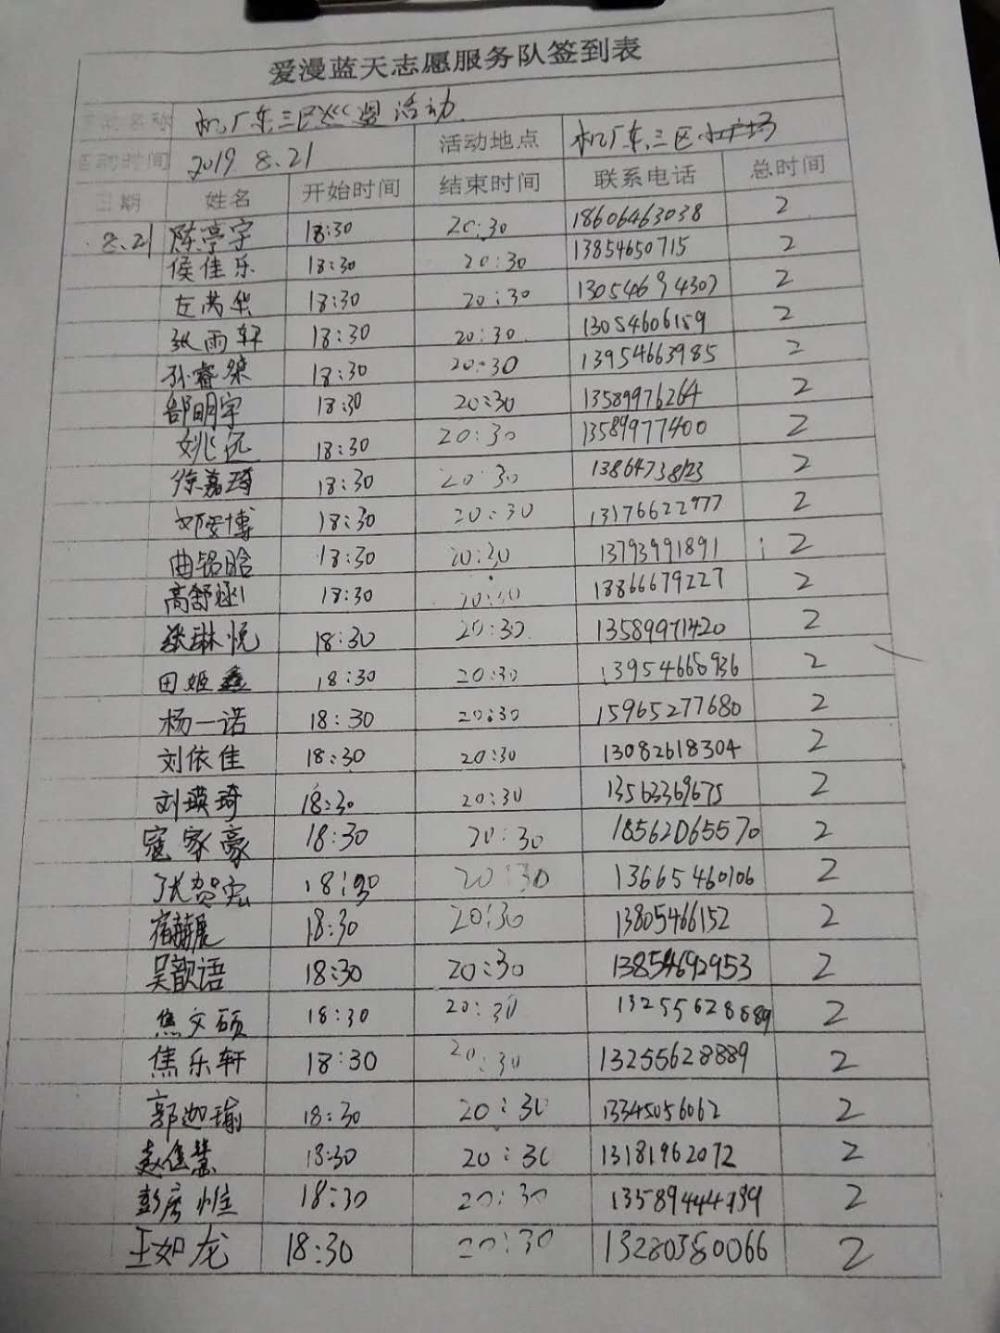 爱漫蓝天志愿服务队签到表
活动名称 机厂东三区巡逻活动
活动时间 2019 8.21 活动地点 机厂东三区小广场
日期 姓名 开始时间 结束时间 联系电话 总时间
8.21 陈亭宇 18:30 20:30 18606463038 2
侯佳乐 18:30 20:30 13854650715 2
左芮华 18:30 20:30 13054694307 2
张雨轩 18:30 20:30 13054606159 2
孙睿 18:30 20:30 13954663985 2
郜明宇 18:30 20:30 13589976264 2
姚远 18:30 20:30 13589977400 2
徐嘉琦 18:30 20:30 13864738123 2
邓雯博 18:30 20:30 13176622977 2
曲铭晗 18:30 20:30 13793991891 2
高舒 18:30 20:30 13866679227 2
张琳悦 18:30 20:30 13589971420 2
田姬鑫 18:30 20:30 13954668936 2
杨一诺 18:30 20:30 15965277680 2
刘依佳 18:30 20:30 13082618304 2
刘瑛琦 18:30 20:30 13563369675 2
寇家豪 18:30 20:30 18562065570 2
张贺宏 18:30 20:30 13665460106 2
18:30 20:30 13805466152 2
吴歆语 18:30 20:30 13854692953 2
焦文硕 18:30 20:30 13255628889 2
焦乐轩 18:30 20:30 13255628889 2
郭迦瑜 18:30 20:30 13345056062 2
赵佳慧 18:30 20:30 13181962072 2
彭唐惟 18:30 20:30 2
王如龙 18:30 20:30 13280380066 2